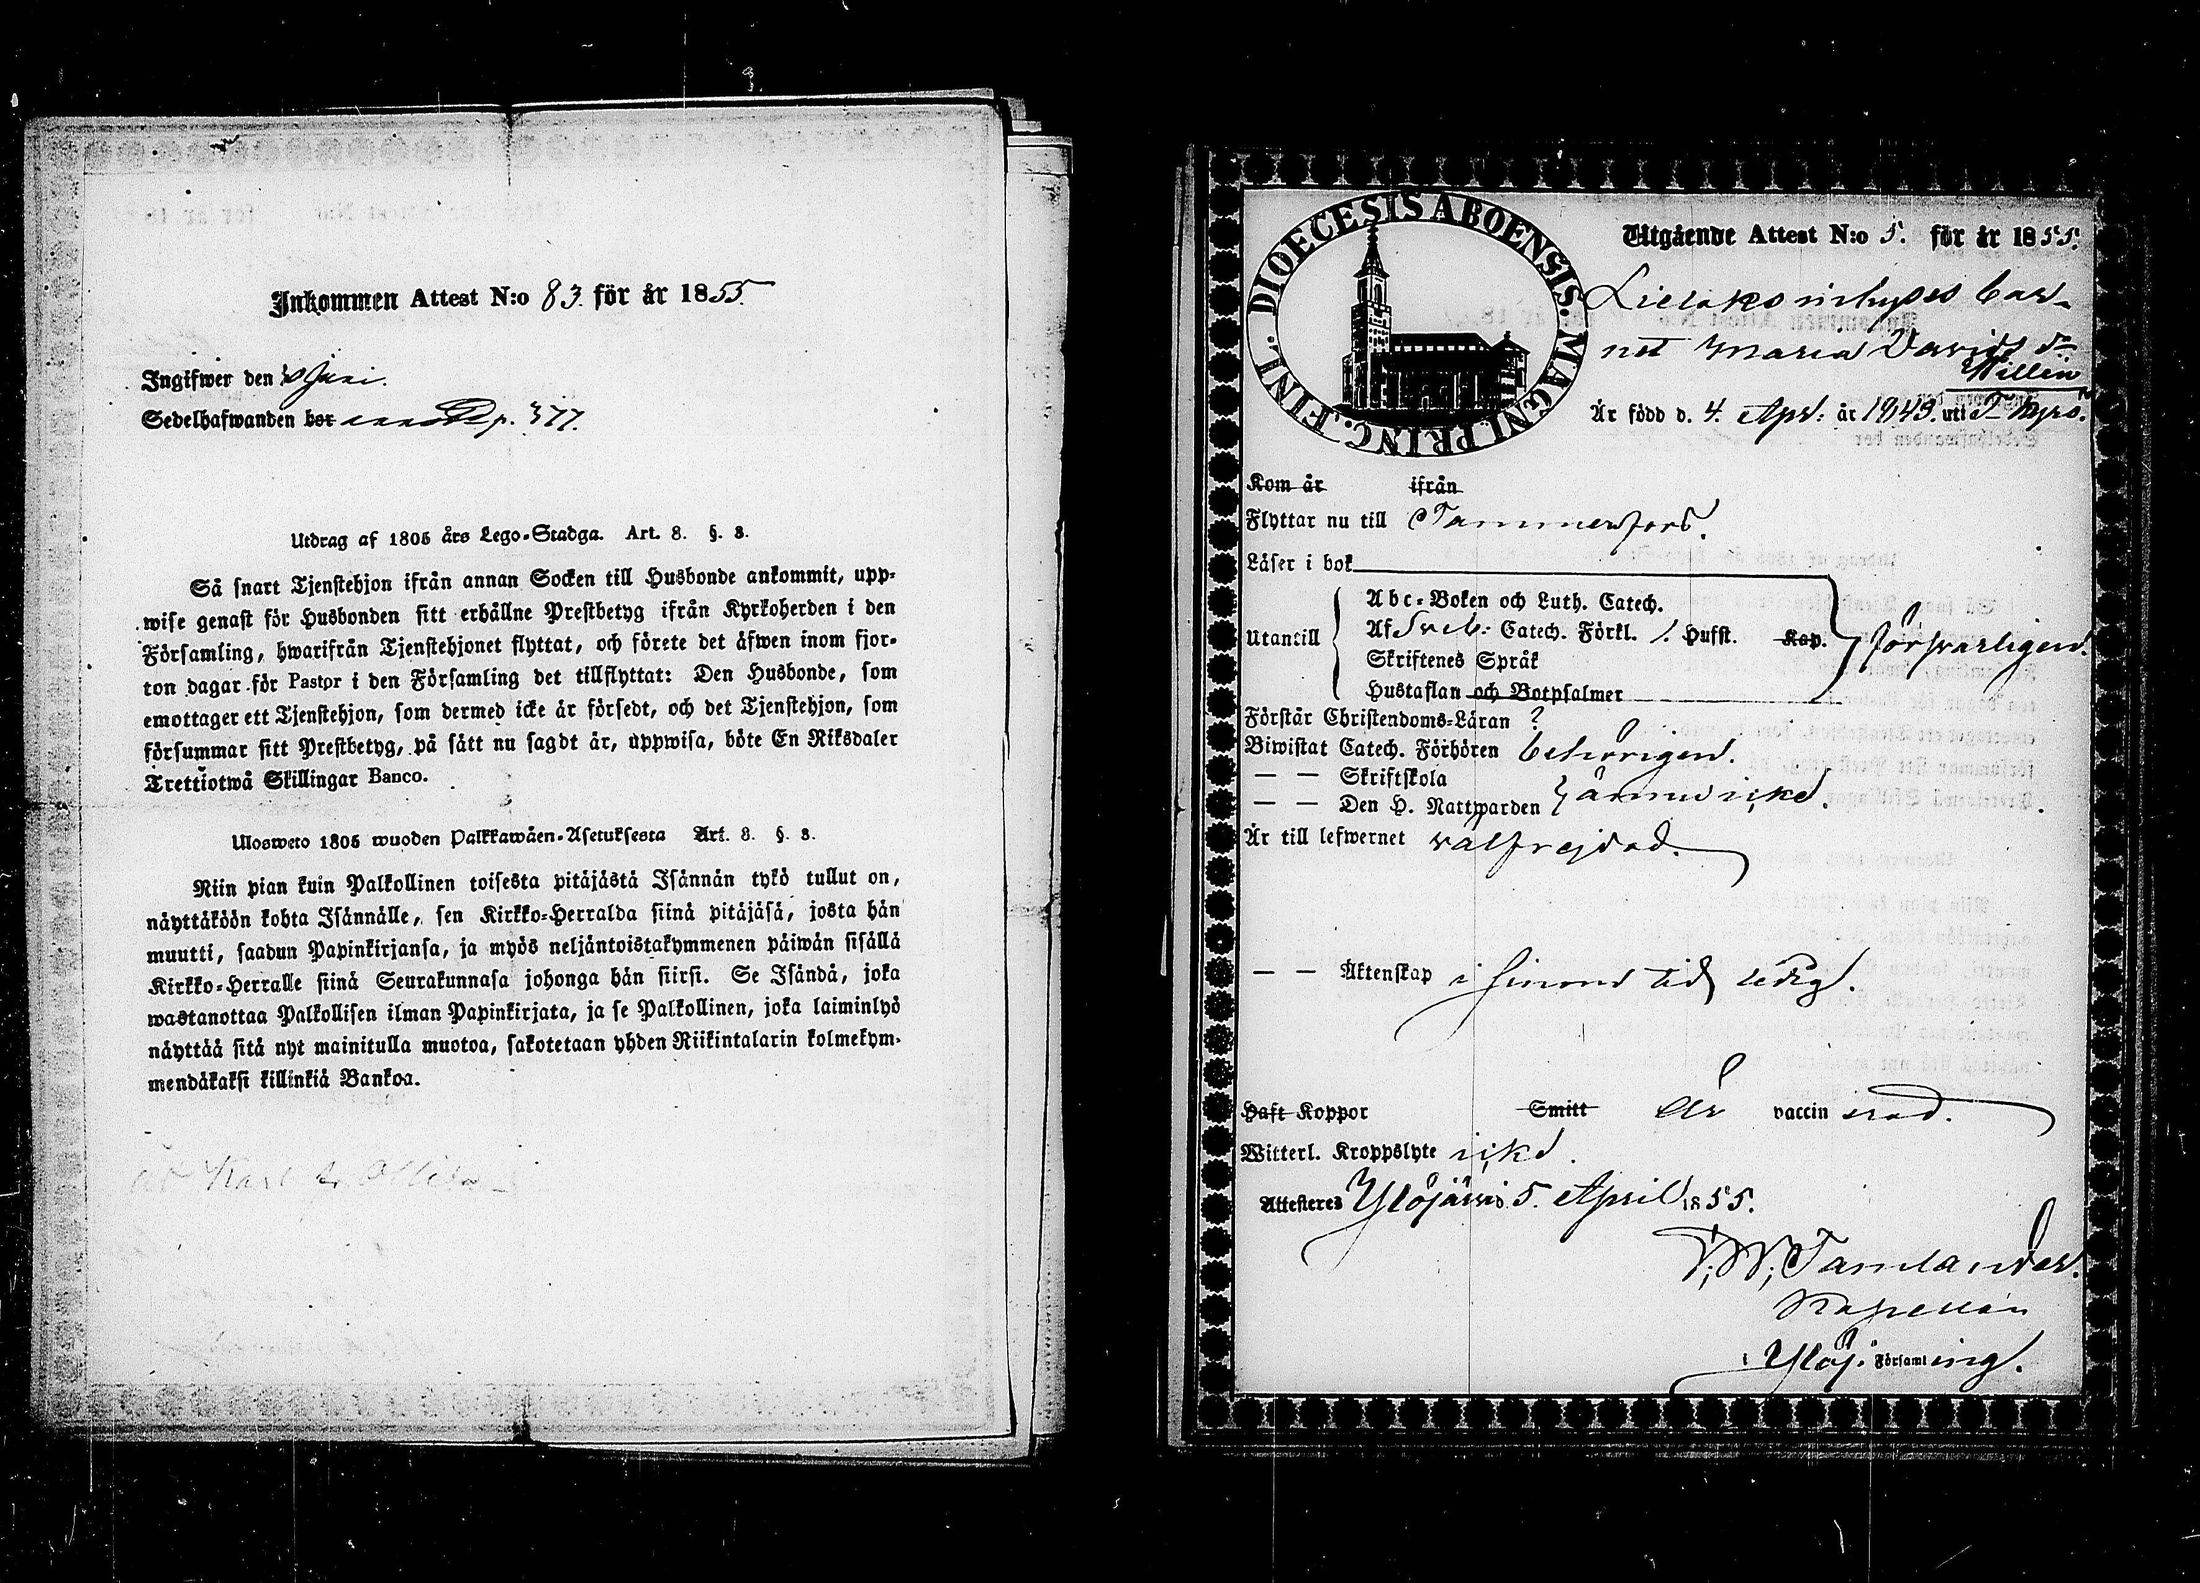 Inkommen Attest N:o 83. för år 1855.
Ingifwer den Juni.
Sedelhafwanden bor p. 377.
Utdrag af 1805 års Lego-Stadga. Art. 8. §. 3.
Så snart Tjenstehjon ifrån annan Socken till Husbonde ankommit, upp-
wise genast för Husbonden sitt erhållne Prestbetyg ifrån Kyrkoherden i den
Församling, hwarifrån Tjenstehjonet flyttat, och förete det äfwen inom fjor-
ton dagar för Pastor i den Församling det tillflyttat: Den Husbonde, som
emottager ett Tjenstehjon, som dermed icke är försedt, och det Tjenstehjon, som
försummar sitt Prestbetyg, på sätt nu sagdt är, uppwisa, böte En Riksdaler
Trettiotwå Skillingar Banco.
Ulosweto 1805 wuoden Palkkawäen-Asetuksesta Art. 8. §. 3.
Niin pian kuin Palkollinen toisesta pitäjästä Isännän tykö tullut on,
näyttäköön kohta Isännälle, sen Kirkko-Herralda siinä pitäjäsä, josta hän
muutti, saadun Papinkirjansa, ja myös neljäntoistakymmenen päiwän sisällä
Kirkko-Herralle siinä Seurakunnasa johonga hän siirsi. Se Isändä, joka
wastanottaa Palkollisen ilman Papinkirjata, ja se Palkollinen, joka laiminlyö
näyttää sitä nyt mainitulla muotoa, sakotetaan yhden Riikintalarin kolmekym-
mendäkaksi killinkiä Bankoa.
DIOECESIS ABOENSIS. MAGNI PRINC. FINL.
Utgående Attest N:o 5. för år 1855.
Lielaks inhyses bar-
net Maria Davids dr
Willen
Är född d. 4. Apr: år 1843. uti T. Kyro.
Kom år ifrån
Flyttar nu till Tammerfors.
Läser i bok
Utantill
Abc-Boken och Luth. Catech.
Af Sveb: Catech. Förkl. 1. Hufst. Kap. försvarligen.
Skriftenes Språk
Hustaflan och Botpsalmer
Förstår Christendoms-Läran ?
Biwistat Catech. Förhören behörigen.
— — Skriftskola
— — Den H. Nattwarden ännu icke.
Är till lefwernet välfrejdad.
— — Äktenskap i sinom tid ledig.
Haft Koppor Smitt är vaccin erad.
Witterl. Kroppslyte icke.
Attesteres Ylöjärvi 5. April 1855.
Tamlander.
Kapellan
i Ylöj. Församl ing.